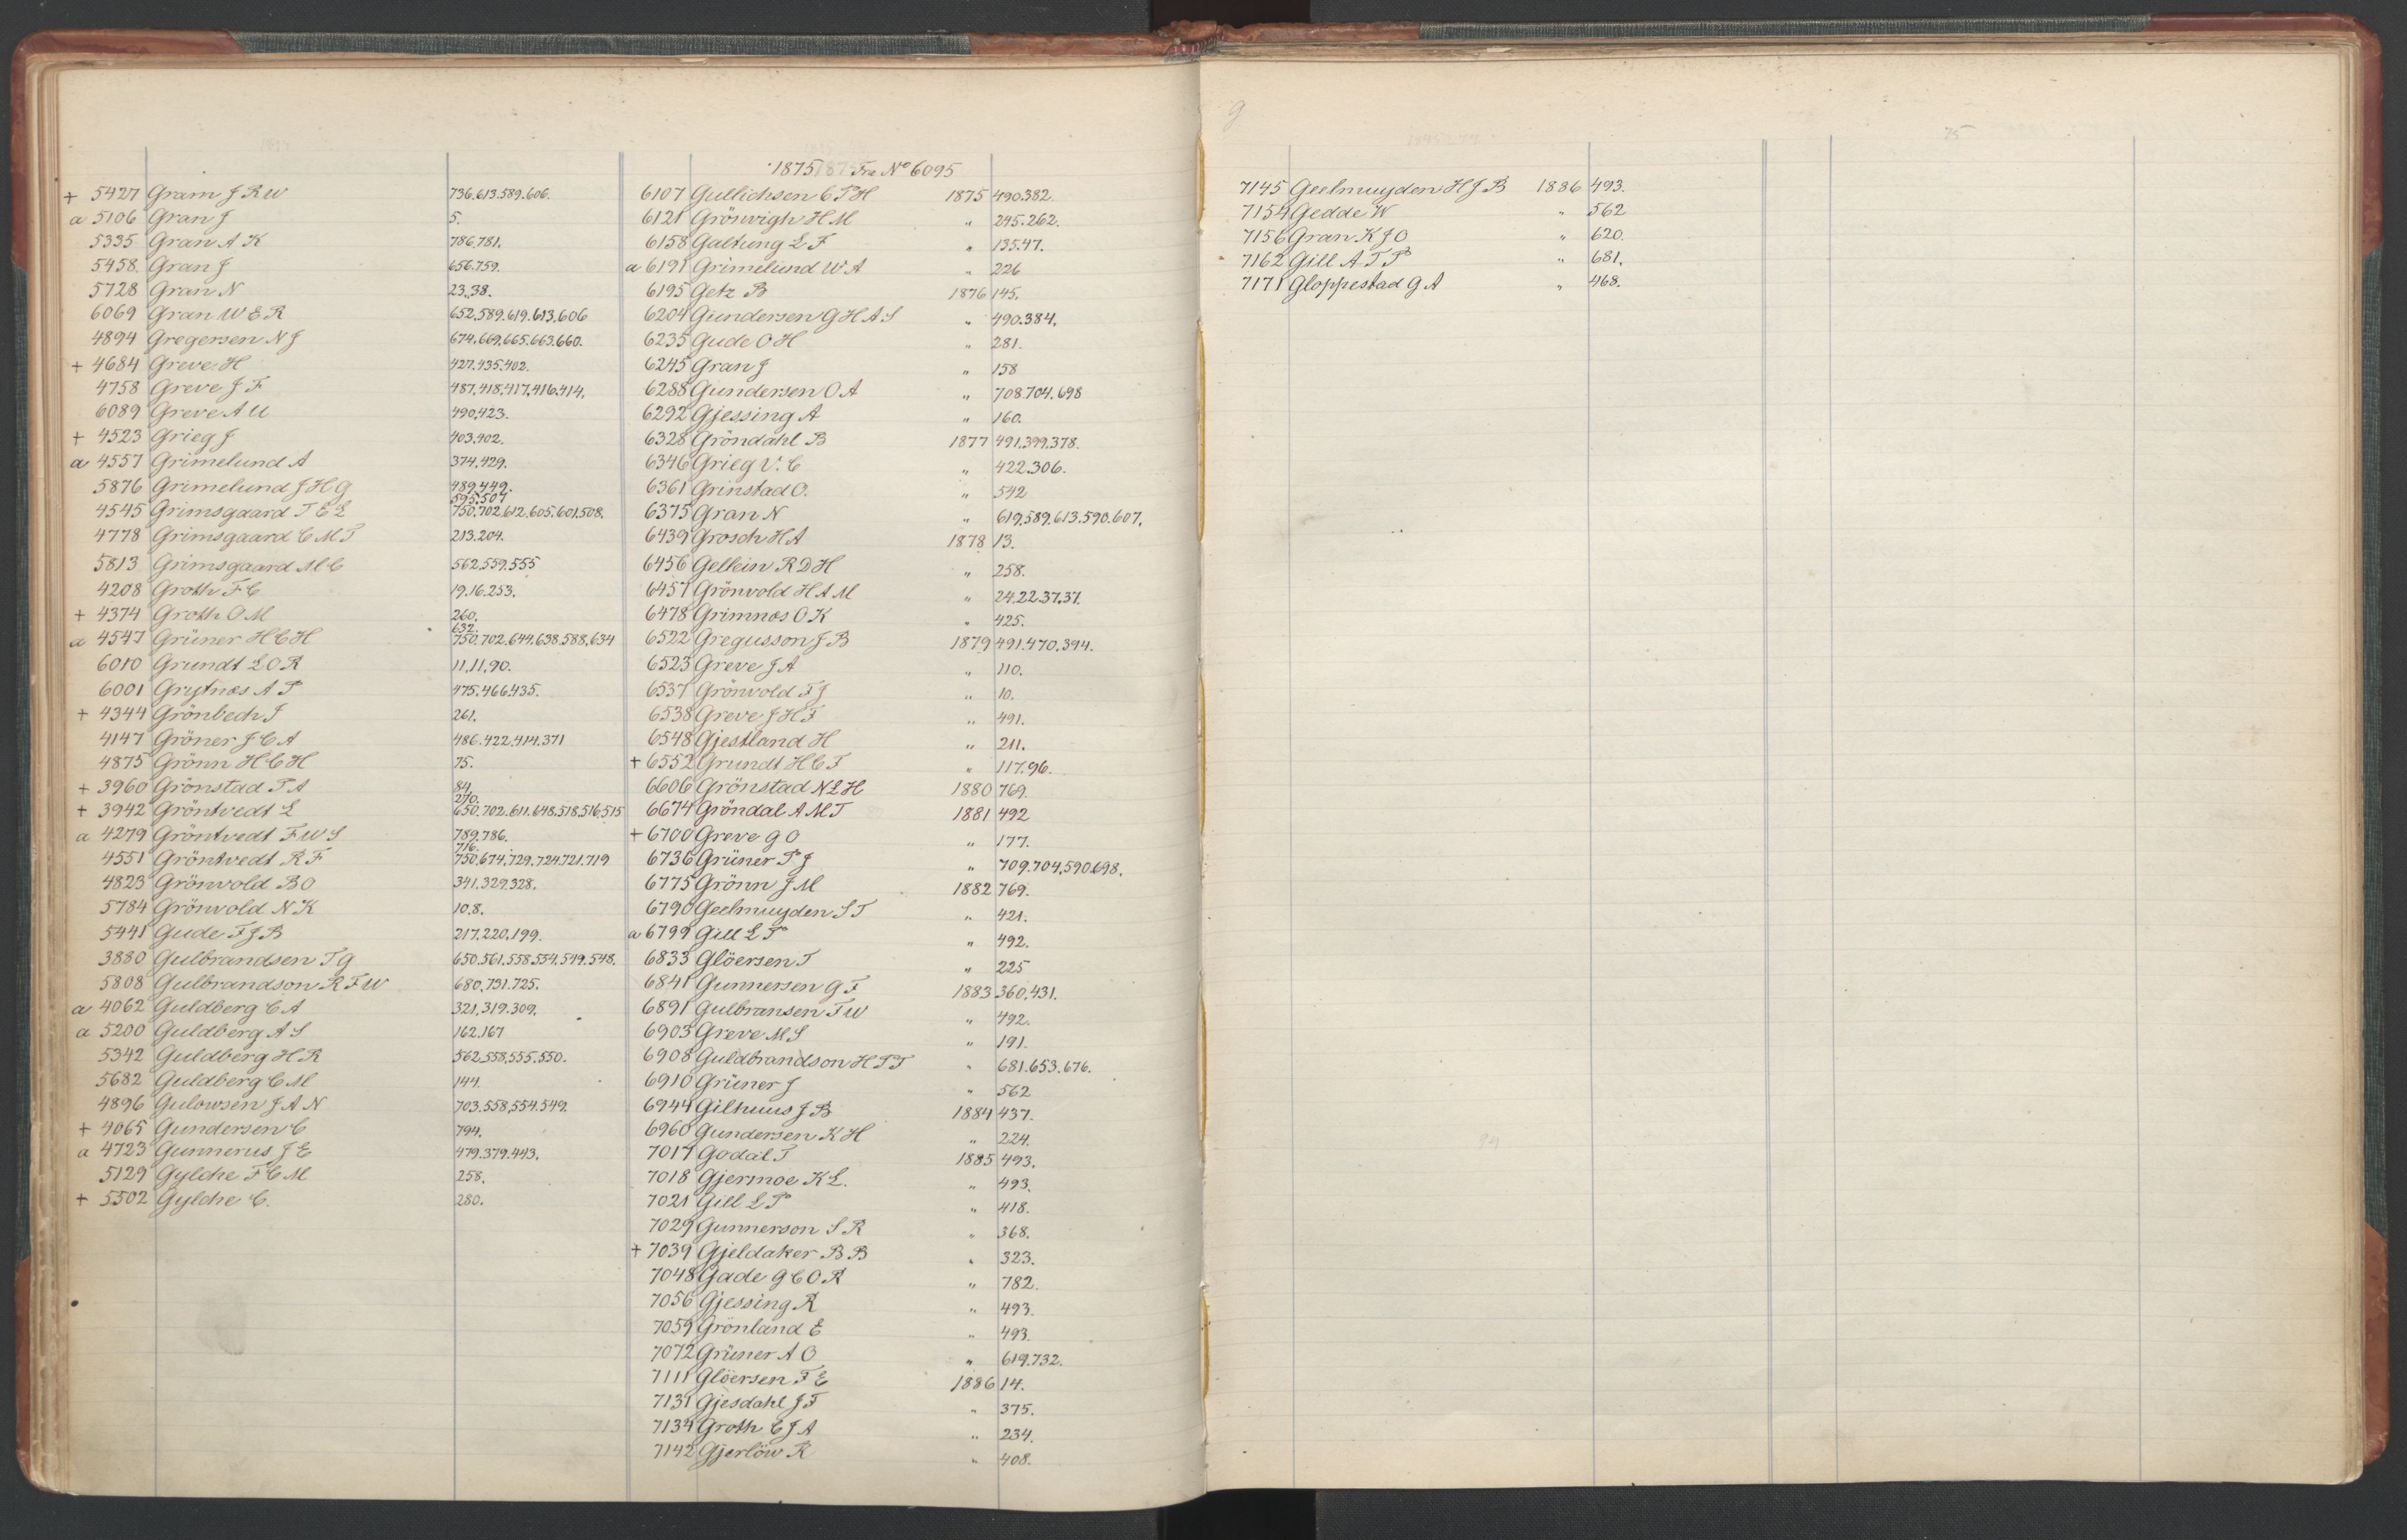 + 5427 Gram J R W 736.613.589.606.
a 5106 Gran J 5.
5335 Gran A K 786.781.
5458 Gran J 656.759.
5728 Gran N 23.38.
6069 Gran W E R 652.589.619.613.606
4894 Gregersen N J 674.669.665.663.660.
+ 4684 Greve H 427.435.402.
4758 Greve J F 487.418.417.416.414.
6089 Greve A U 490.423.
+ 4523 Grieg J 403.402.
a 4557 Grimelund A 374.429.
5876 Grimelund J H G 489.449.
595.507
4545 Grimsgaard T E L 750.702.612.605.601.508.
4778 Grimsgaard C M T 213.204.
5813 Grimsgaard M C 562.559.555
4208 Groth F C 19.16.253.
+ 4374 Groth O M 260.
632.
a 4547 Grüner H C H 750.702.644.638.588.634
6010 Grundt L O R 11.11.90.
6001 Grytnæs A P 475.466.435.
+ 4344 Grönbech J 261.
4147 Gröner J C A 486.422.414.371
4875 Grönn H C H 75.
+ 3960 Grönstad P A 84.
270.
+ 3942 Gröntvedt L 650.702.611.648.518.516.515
a 4279 Gröntvedt F W S 789.786.
716.
4551 Gröntvedt R F 750.674.729.724.721.719
4823 Grönvold B O 341.329.328.
5784 Grönvold N K 10.8.
5441 Gude F J B 217.220.199.
3880 Gulbrandsen T G 650.561.558.554.549.548.
5808 Gulbrandson R F W 680.731.725.
a 4062 Guldberg C A 321.319.309.
a 5200 Guldberg A S 162.167
5342 Guldberg H R 562.558.555.550.
5682 Guldberg C M 144.
4896 Gulowsen J A N 703.558.554.549.
+ 4065 Gundersen C 794.
a 4723 Gunnerus J E 479.379.443.
5129 Gylche F C M 258.
+ 5502 Gylche C. 280.
1875 Fra No 6095
6107 Gullichsen C P H 1875 490.382.
6121 Grönvigh H M " 245.262.
6158 Galtung L F " 135.47.
a 6191 Grimelund W A " 226
6195 Getz B 1876 145.
6204 Gundersen G H A S " 490.384.
6235 Gude O H " 281.
6245 Gran J " 158
6288 Gundersen O A " 708.704.698
6292 Gjessing A " 160.
6328 Gröndahl B 1877 491.399.378.
6346 Grieg V. C " 422.306.
6361 Grinstad O. " 542
6375 Gran N " 619.589.613.590.607.
6439 Grosch H A 1878 13.
6456 Gellein R D H " 258.
6457 Grönvold H A M " 24.22.37.37.
6478 Grimnæs O K " 425.
6522 Gregusson J B 1879 491.470.394.
6523 Greve J A " 110.
6537 Grönvold F J " 10.
6538 Greve J H F " 491.
6548 Gjestland H " 211.
+ 6552 Grundt H C F " 117.96.
6606 Grönstad N L H 1880 769.
6674 Gröndal A M T 1881 492
+ 6700 Greve G O " 177.
6736 Grüner P J " 709.704.590.698.
6775 Grönn J M 1882 769.
6790 Geelmuyden S T " 421.
a 6799 Gill L P " 492.
6833 Glöersen T " 225
6841 Gunnersen G F 1883 360.431.
6891 Gulbransen F W " 492.
6903 Greve M S " 191.
6908 Guldbrandson H P T " 681.653.676.
6910 Grüner J " 562
6944 Gilhuus J B 1884 437.
6960 Gundersen K H " 224.
7017 Godal T 1885 493.
7018 Gjermoe K L. " 493.
7021 Gill L P " 418.
7029 Gunnerson S R " 368.
+ 7039 Gjeldaker B B " 323.
7048 Gade G C O R " 782.
7056 Gjessing R " 493.
7059 Grönland E " 493.
7072 Grüner A O " 619.732.
7111 Glöersen F E 1886 14.
7131 Gjesdahl J F " 375.
7134 Groth C J A " 234.
7142 Gjerlöw R " 408.
g
7145 Geelmuyden H J B 1886 493.
7154 Gedde W " 562
7156 Gran K J O " 620.
7162 Gill A T P " 681.
7171 Gloppestad G A " 468.
75
94